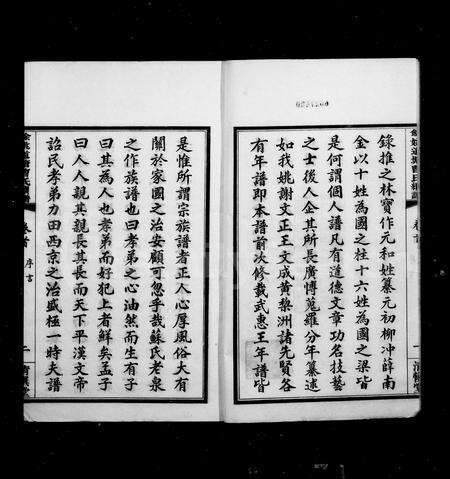 錄推之林寶作元和姓纂元初柳冲薛南
金以十姓為國之柱十六姓為國之梁皆
是何謂個人譜凡有道德文章功名技藝
之士後人企其所長廣博蒐羅分年纂述
如我姚謝文正王文成黃黎洲諸先賢各
有年譜即本譜前次修裁武惠王年譜皆
是惟所謂宗族譜者正人心厚風俗大有
關於家國之治安顧可忽乎哉蘇氏老泉
之作族譜也曰孝弟之心油然而生有子
曰其為人也孝弟而好犯上者鮮矣孟子
曰人人親其親長其長而天下平漢文帝
詔民孝弟力田西京之治盛極一時夫譜
卷首 序言 二